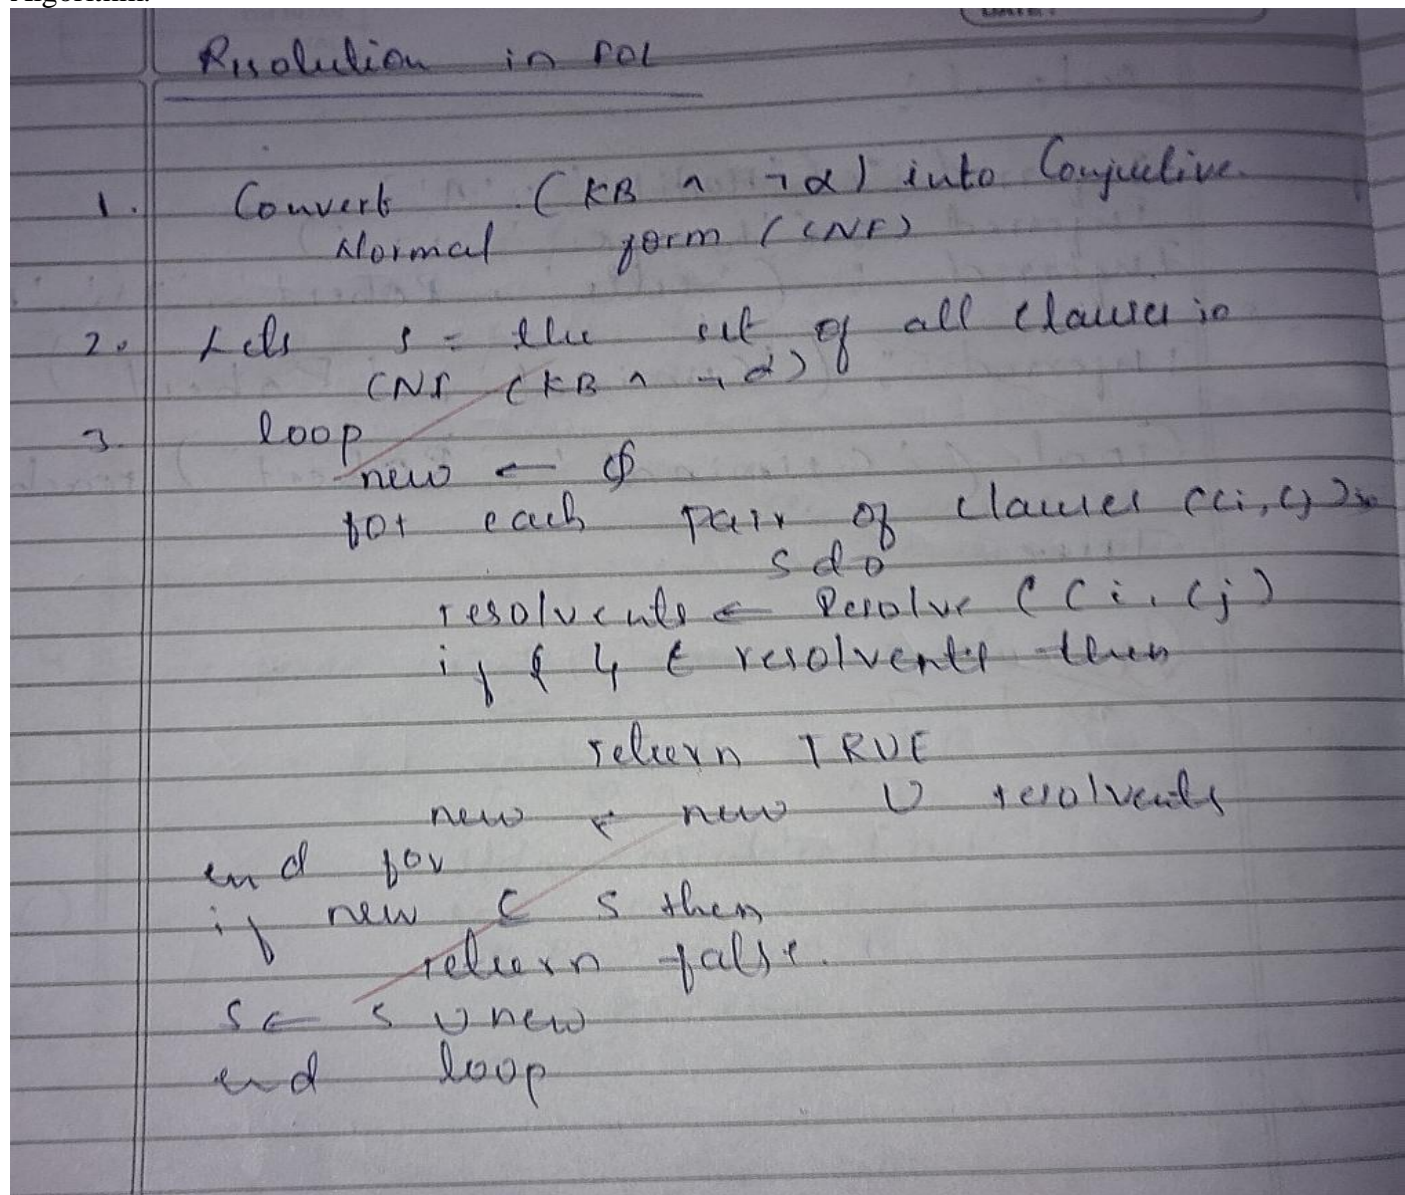 Algorithm:
Resolution in FOL
1. Convert (KB ∧ ¬α) into Conjuctive
Normal form (CNF)
2. Lets S = the set of all clauses in
CNF (KB ∧ ¬α)
3. loop
new ← φ
for each pair of clauses (Ci, Cj) in
S do
resolvents ← Resolve (Ci, Cj)
if ∈ resolvents then
return TRUE
new ← new ∪ resolvents
end for
if new ⊂ S then
return false.
S ← S ∪ new
end loop